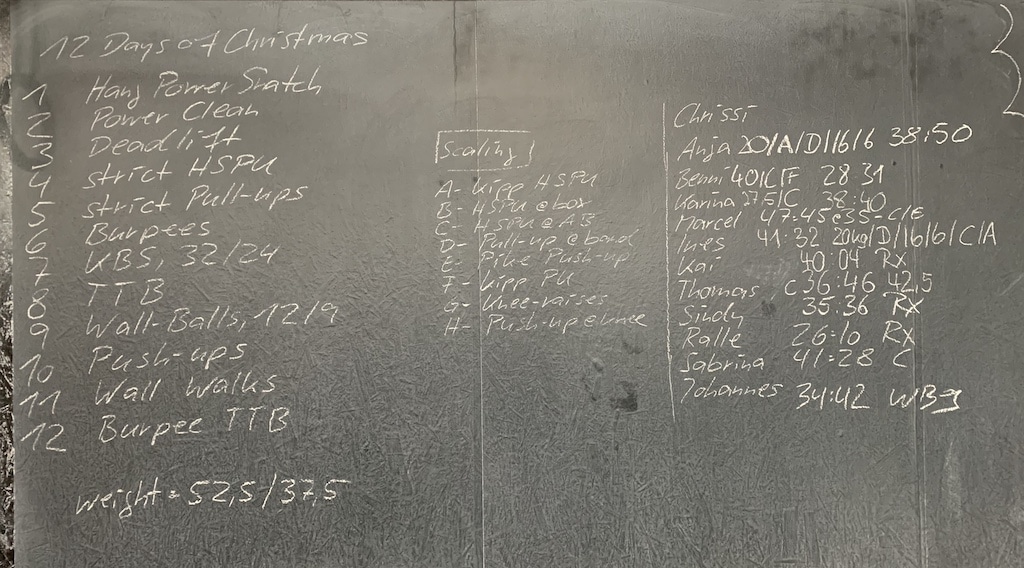 12 Days of Christmas
1 Hang Power Snatch
2 Power Clean
3 Deadlift
4 strict HSPU
5 strict Pull-ups
6 Burpees
7 KBS, 32/24
8 TTB
9 Wall-Balls, 12/9
10 Push-ups
11 Wall Walks
12 Burpee TTB
weight = 52,5/37,5
Scaling
A- Kipp HSPU
B- HSPU @ box
C- HSPU @ AB
D- Pull-up @ band
E- Pike Push-up
F- Kipp PU
G- Knee-raises
H- Push-up @ knee
Chrissi
Anja 20/A/D/16/6 38:50
Benni 40/C/F 28 31
Karina 27,5/C 38:40
Marcel 47:45 @35-C/E
Ines 41:32 20kg/D/16/6/C/A
Kai 40:04 Rx
Thomas C 36:46 42,5
Sindy 35:36 RX
Ralle 26:10 RX
Sabrina 41:28 C
Johannes 34:42 WB9